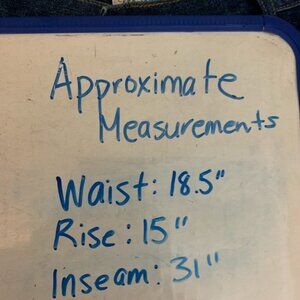 Approximate
Measurements
Waist: 18.5"
Rise: 15"
Inseam: 31"